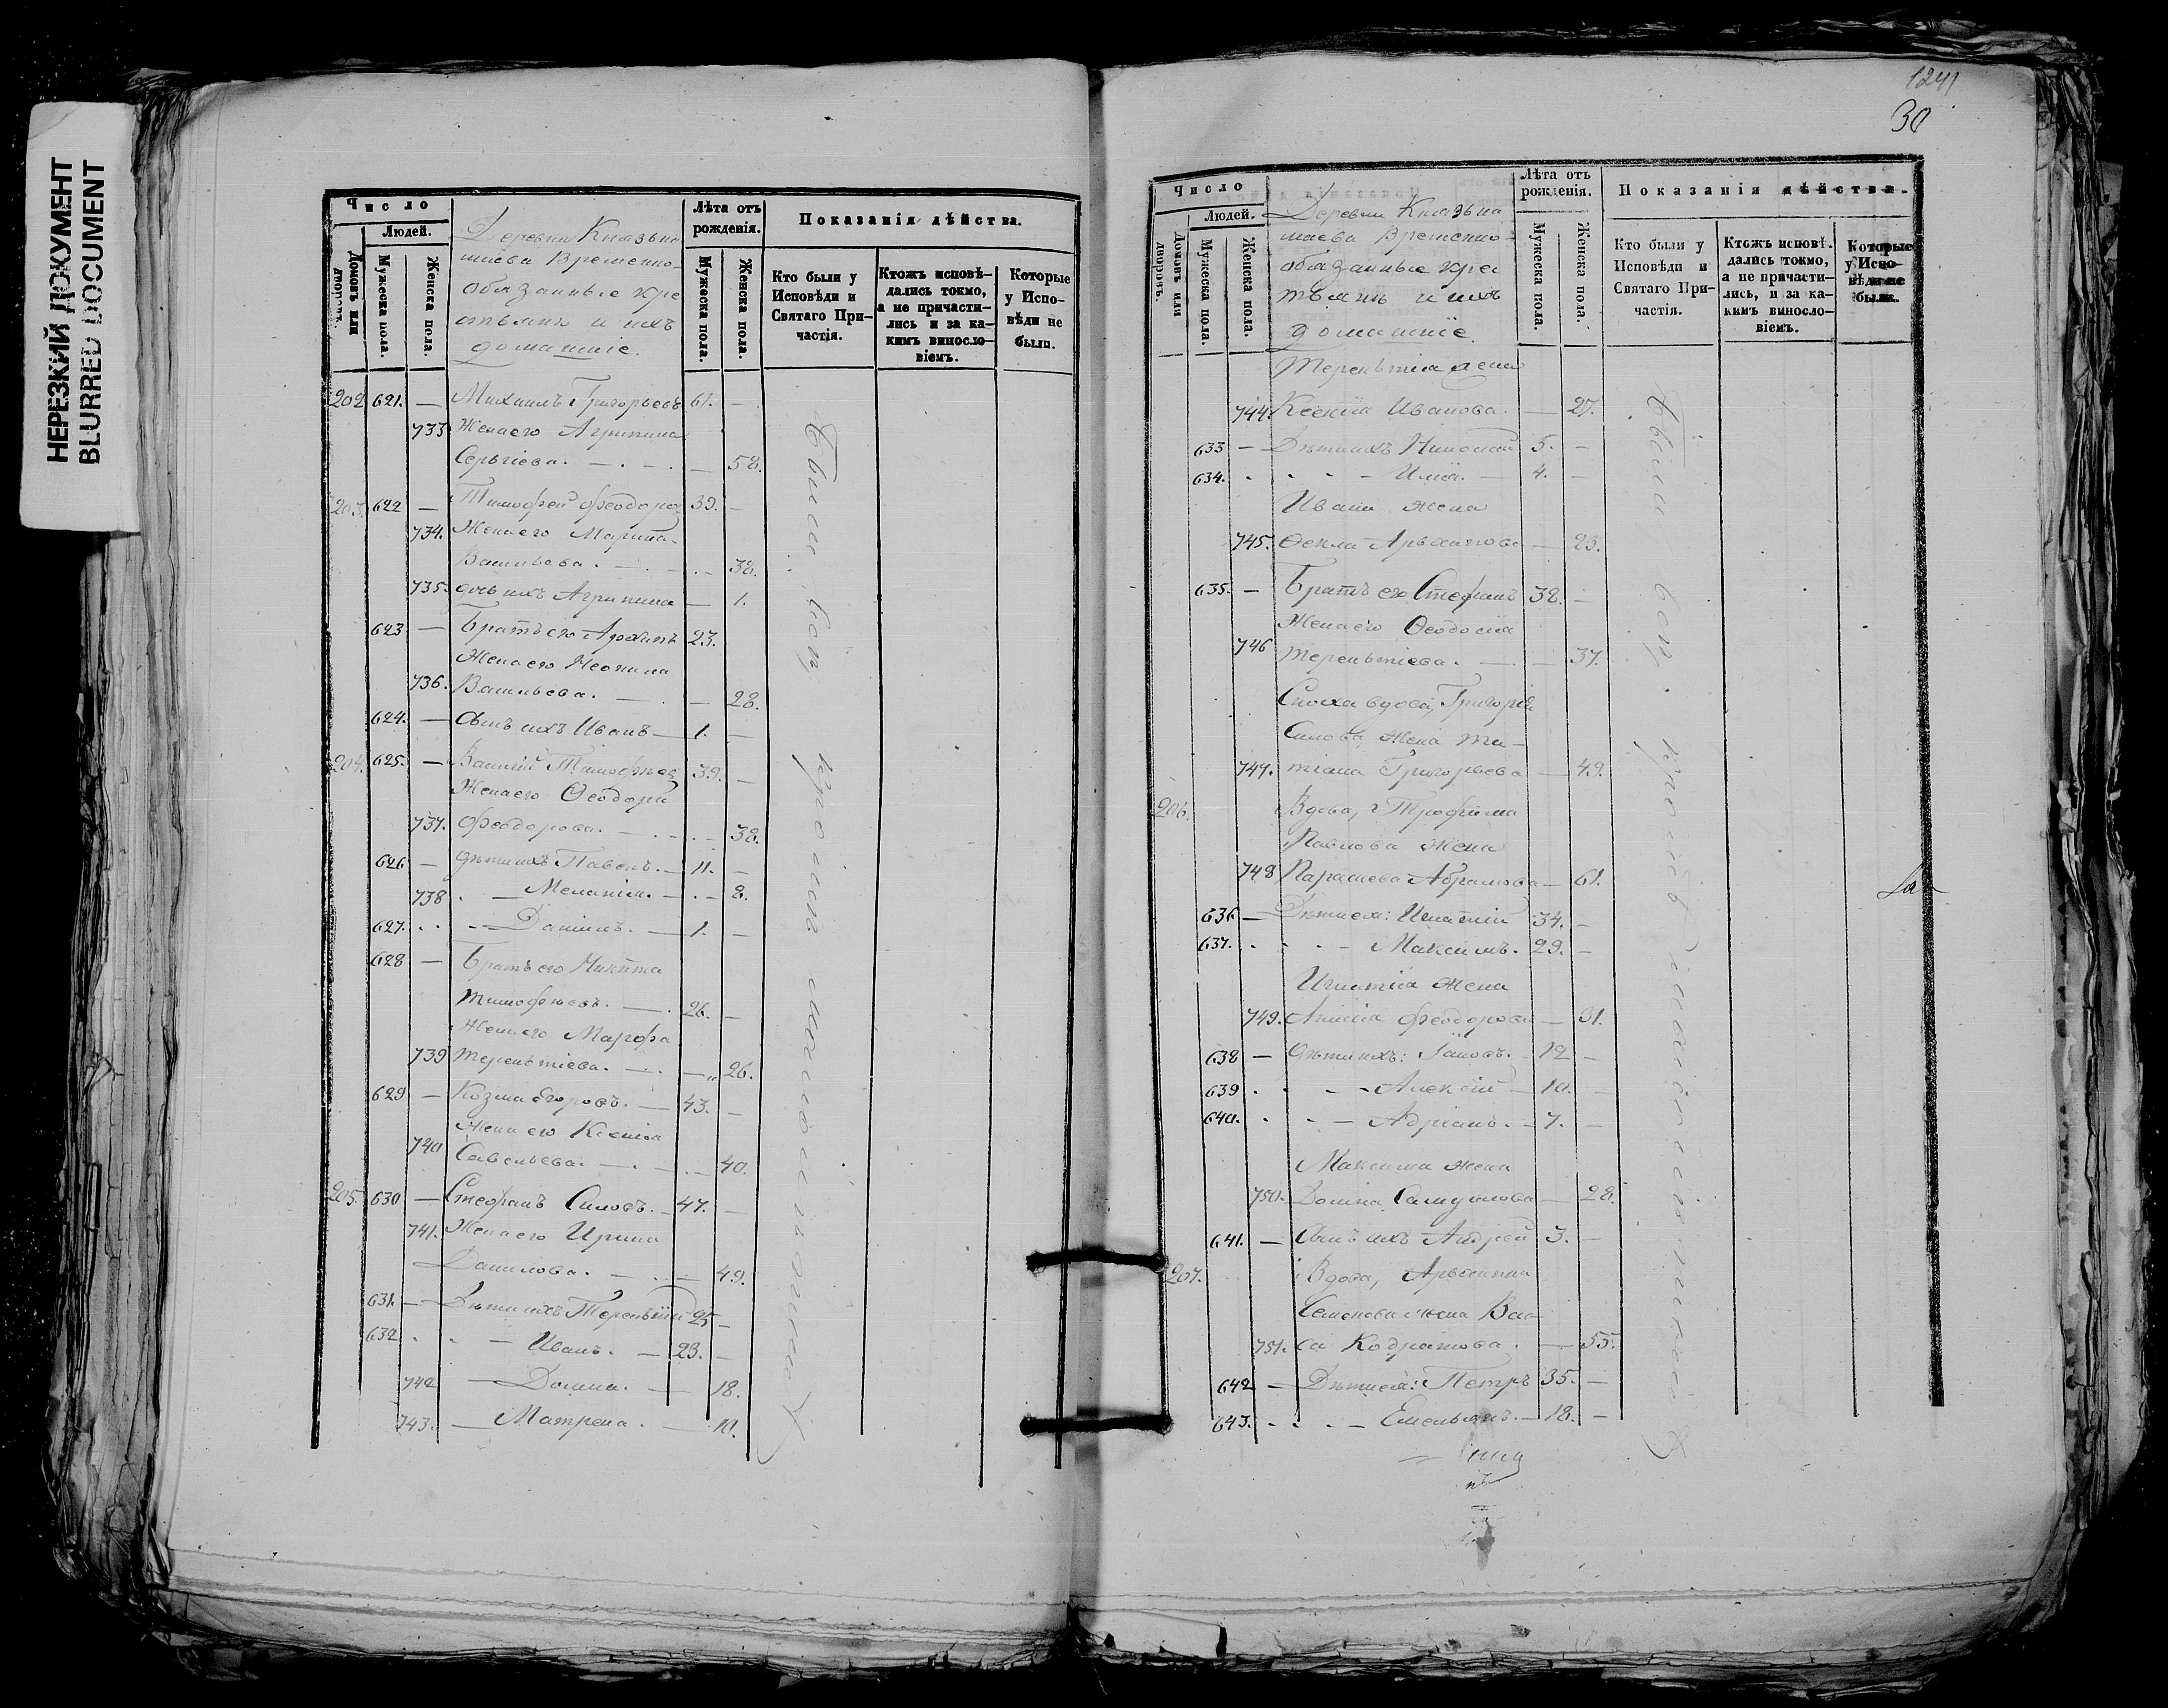 НЕРЕЗКИЙ ДОКУМЕНТ
BLURRED DOCUMENT
Число
Людей.
Домовъ или дворовъ.
Мужеска пола.
Женска пола.
Деревни
Временно-
обязанные кре
стьяне и ихъ
домашніе.
Лѣта отъ
рожденія.
Мужеска пола.
Женска пола.
Показанія дѣйства.
Кто были у
Исповѣди и
Святаго При-
частія.
Ктожъ исповѣ-
дались токмо,
а не причасти-
лись и за ка-
кимъ винословіемъ.
Которые
у Испо-
вѣди не
были.
202 621. — Михаилъ Григорьевъ 61. —
733 Жена его Агрипина
Сергіева. — 58.
203. 622 — Тимофей Феодоров 39. —
734. Жена его
Васильева. — 38.
735. дочь ихъ Агрипина — 1.
623 — Братъ его 23.
Жена его Неонила
736. Васильева. — 28.
624. — Сынъ ихъ Иванъ — 1. —
204. 625. — Василій Тимофеев 39. —
Жена его Ѳеодора
737. Феодорова. — 38.
626 — дѣти ихъ Павелъ. — 11. —
738 — Меланія. — 8.
627. — Даниилъ. — 1. —
628 — Братъ его Никита
Тимофѣевъ. — 26. —
Жена его Марфа
739 Терентіева. — 26.
629 — Козма Егоровъ. — 43. —
Жена его Ксенія
740 Савельева. — 40.
205. 630 — Стефанъ Силовъ. — 47. —
741. Жена его Ирина
Данилова. — 49.
631. — Дѣти ихъ Терентій 25 —
632 — Иванъ. — 23. —
742 — Домна. — 18.
743. — Матрена. — 10.
Были всѣ
1241
30
Число
Людей.
Домовъ или дворовъ.
Мужеска пола.
Женска пола.
Деревни
Временно-
обязанные крес
тьяне и ихъ
домашніе.
Лѣта отъ
рожденія.
Мужеска пола.
Женска пола.
Показанія дѣйства.
Кто были у
Исповѣди и
Святаго При-
частія.
Ктожъ исповѣ-
дались токмо,
а не причасти-
лись, и за ка-
кимъ винословіемъ.
Которые
у Испо-
вѣди не
были.
Терентія жена
744. Ксенія Иванова. — 27.
633 — Дѣти ихъ Николай 5. —
634. — Илія. — 4. —
Ивана жена
745. Ѳекла — 23.
635. — Братъ его Стефанъ 38. —
Жена его Ѳеодосія
746 Терентіева. — 37.
Сноха вдова, Григорія
Силова жена Та-
747. тіана Григорьева — 49.
206. Вдова, Трофима
Павлова жена
748 Параскева Абрамова — 61.
636 — Дѣти ея: Игнатій 34. —
637. — Максимъ. 29. —
Игнатія жена
749. Феодорова — 31.
638 — дѣти ихъ: Іаковъ. 12 —
639 — Алексій — 10. —
640. — Адріанъ. — 7. —
Максима жена
750. Домна Самуилова — 28.
641. — Сынъ ихъ Андрей 3. —
207. Вдова,
Семенова жена Вас-
751. са Кодратова. — 55.
642 — Дѣти ея: Петръ 35. —
643. — Емельянъ. — 18. —
Были всѣ